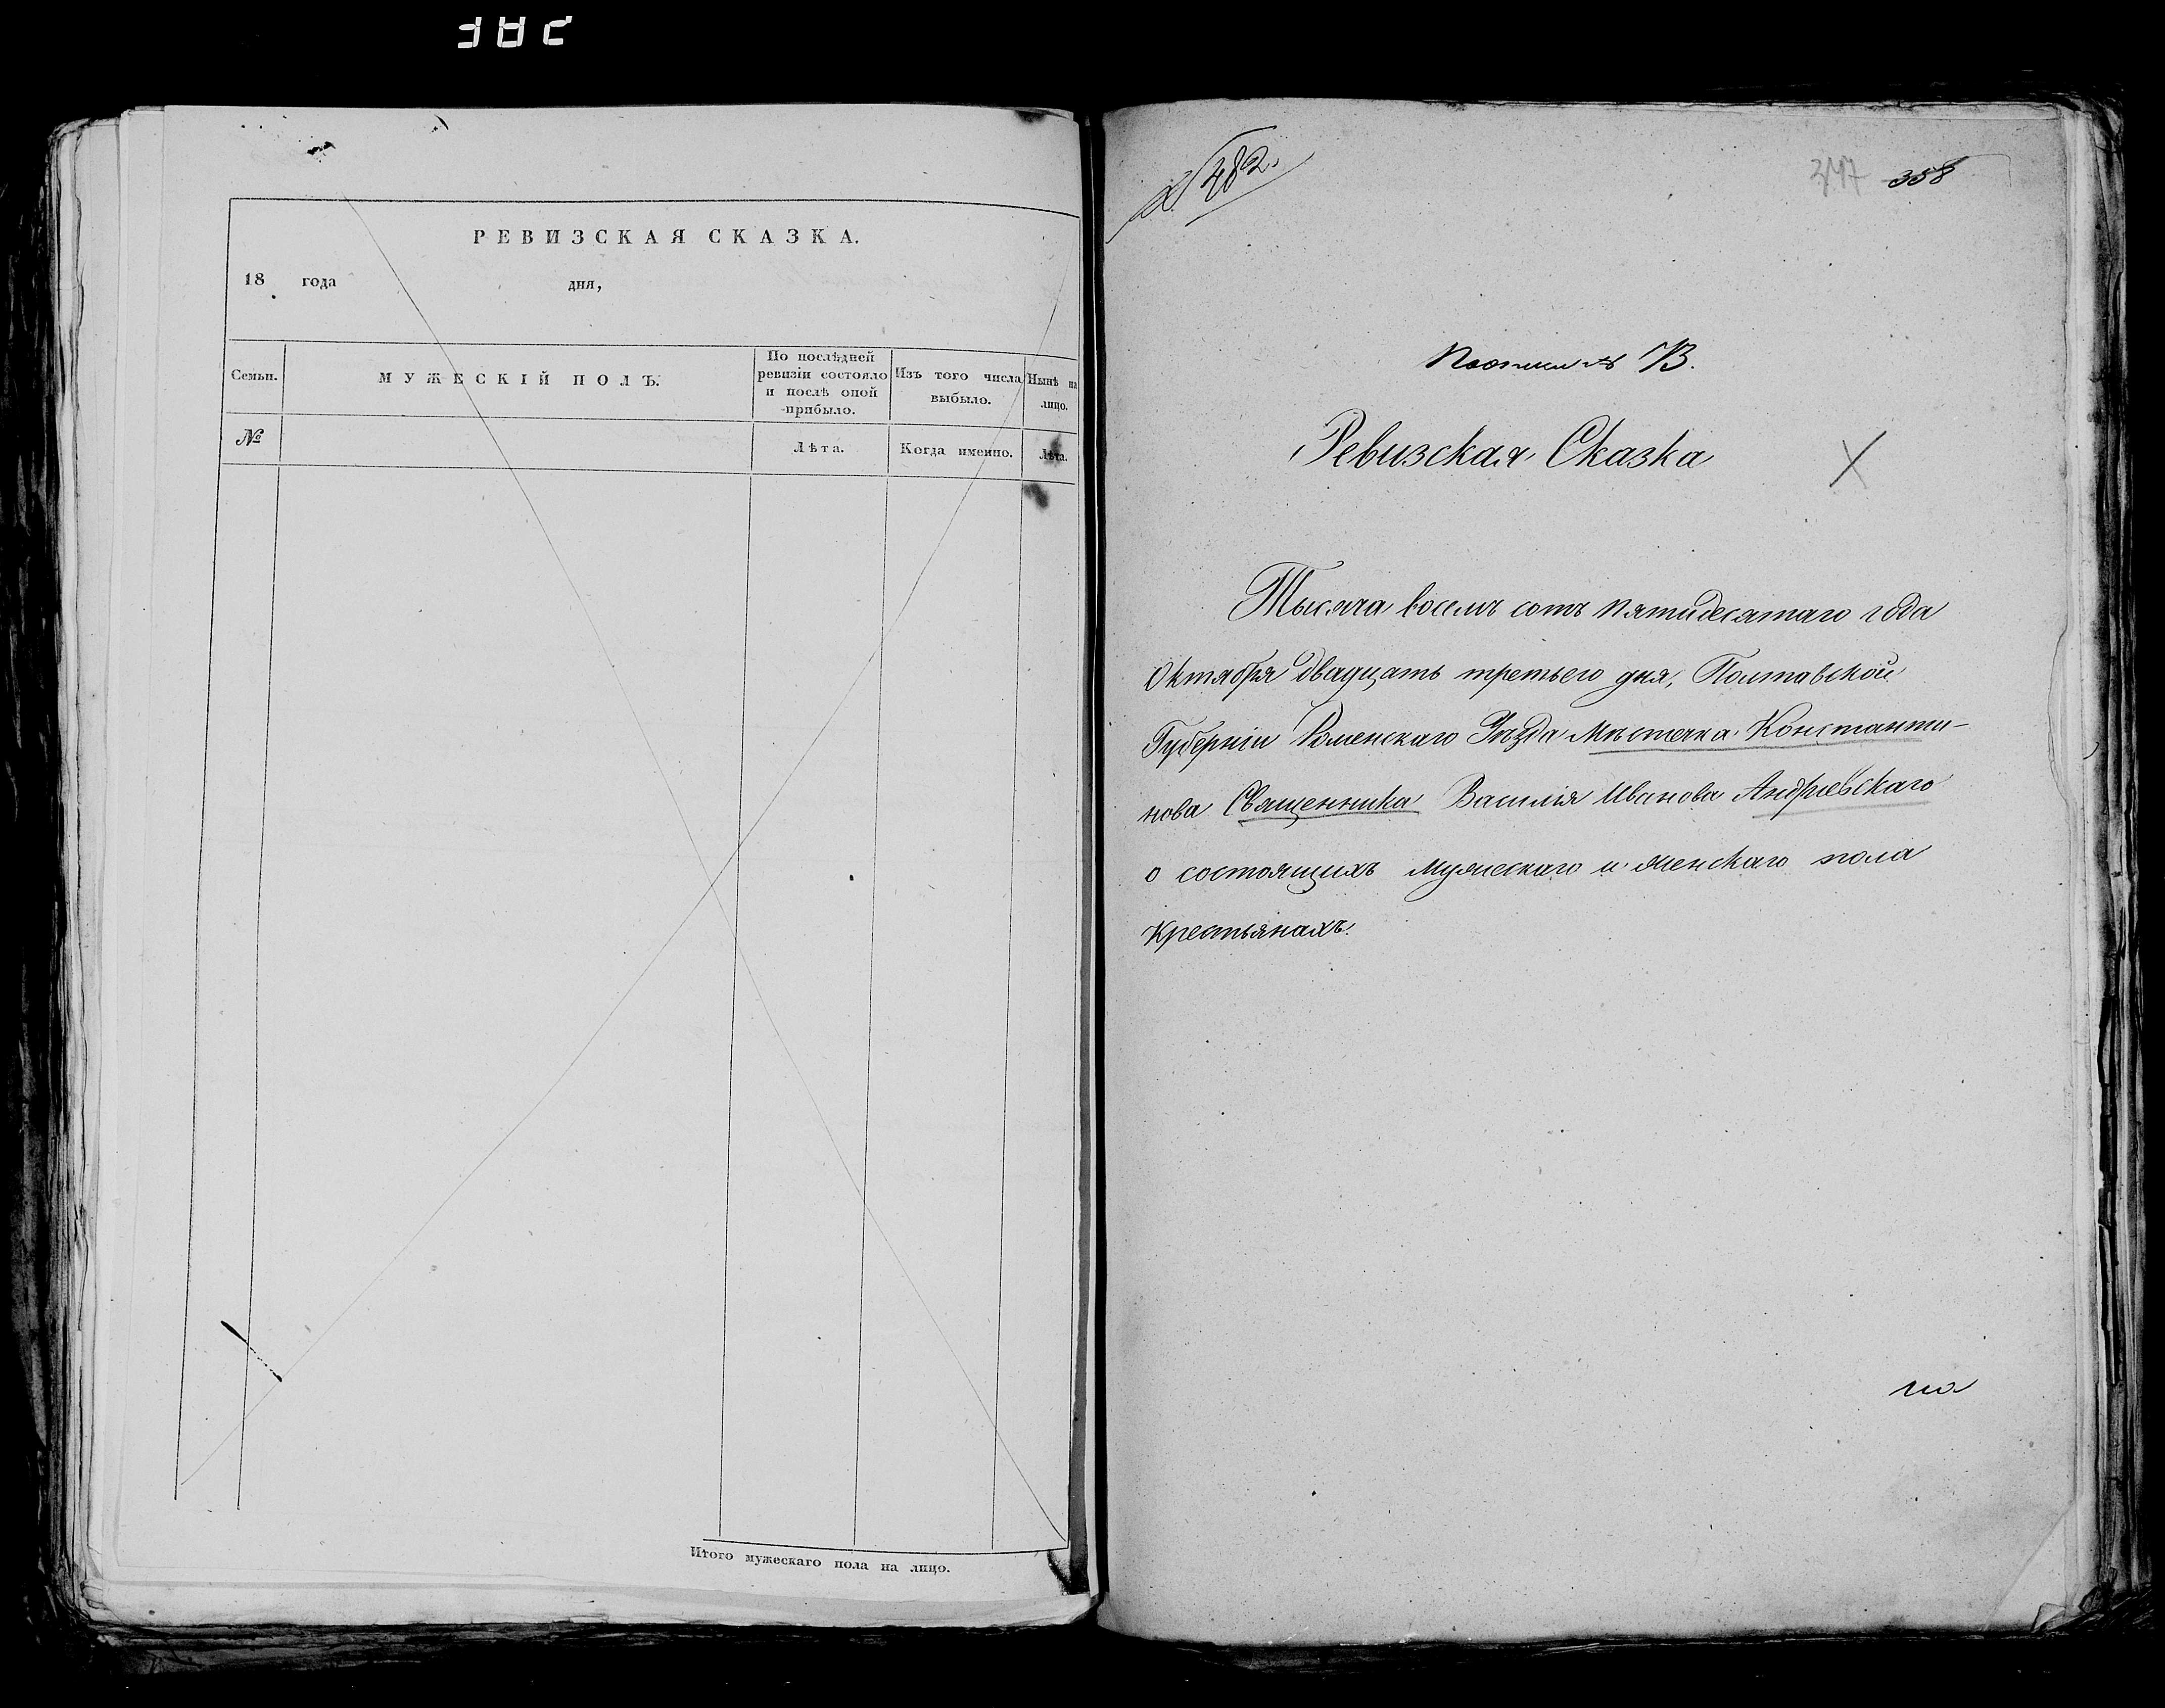 382
РЕВИЗСКАЯ СКАЗКА.
18 года дня,
Семьи.
МУЖЕСКІЙ ПОЛЪ.
По послѣдней
ревизіи состояло
и послѣ оной
прибыло.
Изъ того числа
выбыло.
Нынѣ на
лицо.
№
Лѣта.
Когда именно.
Лѣта.
Итого мужескаго пола на лицо.
482.
347 358
В.
Ревизская Сказка
Тысяча восемъ сотъ пятидесятаго года
Октября двадцать третьего дня, Полтавской
Губерніи Роменскаго Уѣзда Мѣстечка Константи-
нова Священника Василія Иванова Андріевскаго
о состоящихъ мужескаго и женскаго пола
крестьянахъ.